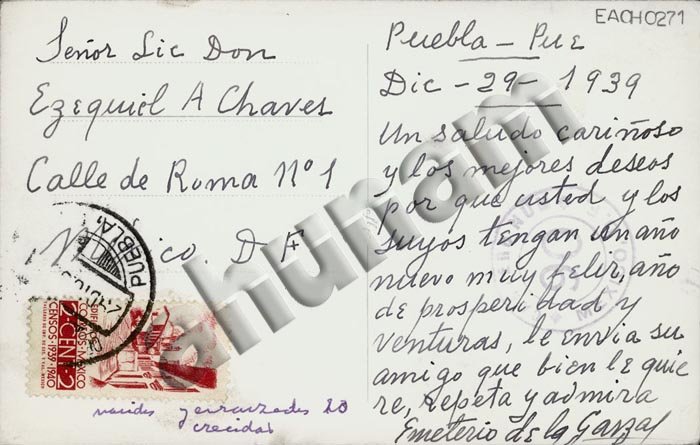 EACH0271
Señor Lic Don
Ezequiel A Chaves
Calle de Roma N°1
México. D F
Puebla - Pue
Dic - 29 - 1939
Un saludo cariñoso
y los mejores deseos
por que usted y los
suyos tengan un año
nuevo muy feliz, año
de prosperidad y
venturas, le envia su
amigo que bien le quie
re, respeta y admira
Emeterio de la Garza
PUEBLA
CENSOS-1939-1940
2-CENT-2
MEXICO
crecidas
ahunam